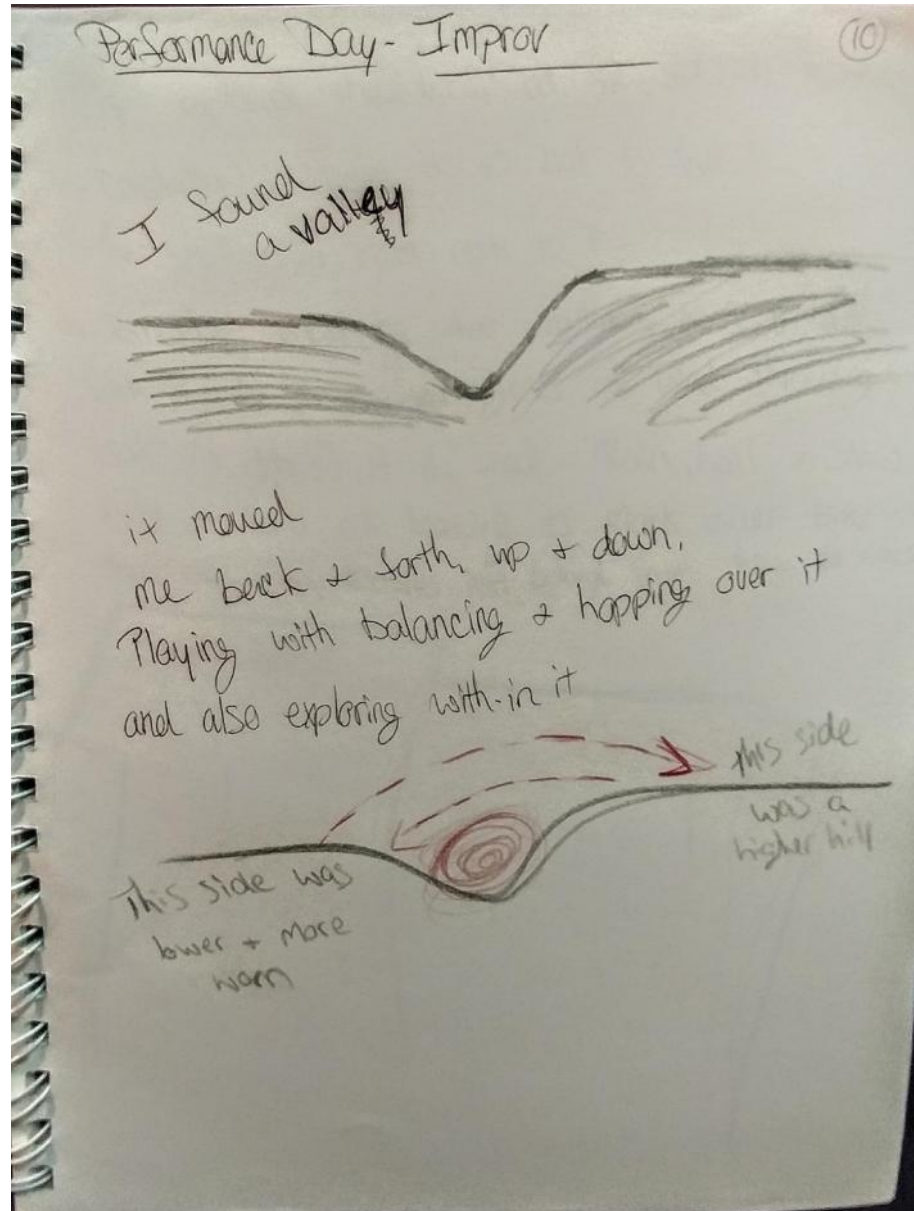 Performance Day - Improv
10
I found
a valley
it moved
me back & forth, up & down,
Playing with balancing & hopping over it
and also exploring with-in it
This side
was a
higher hill
This side was
lower + more
warn